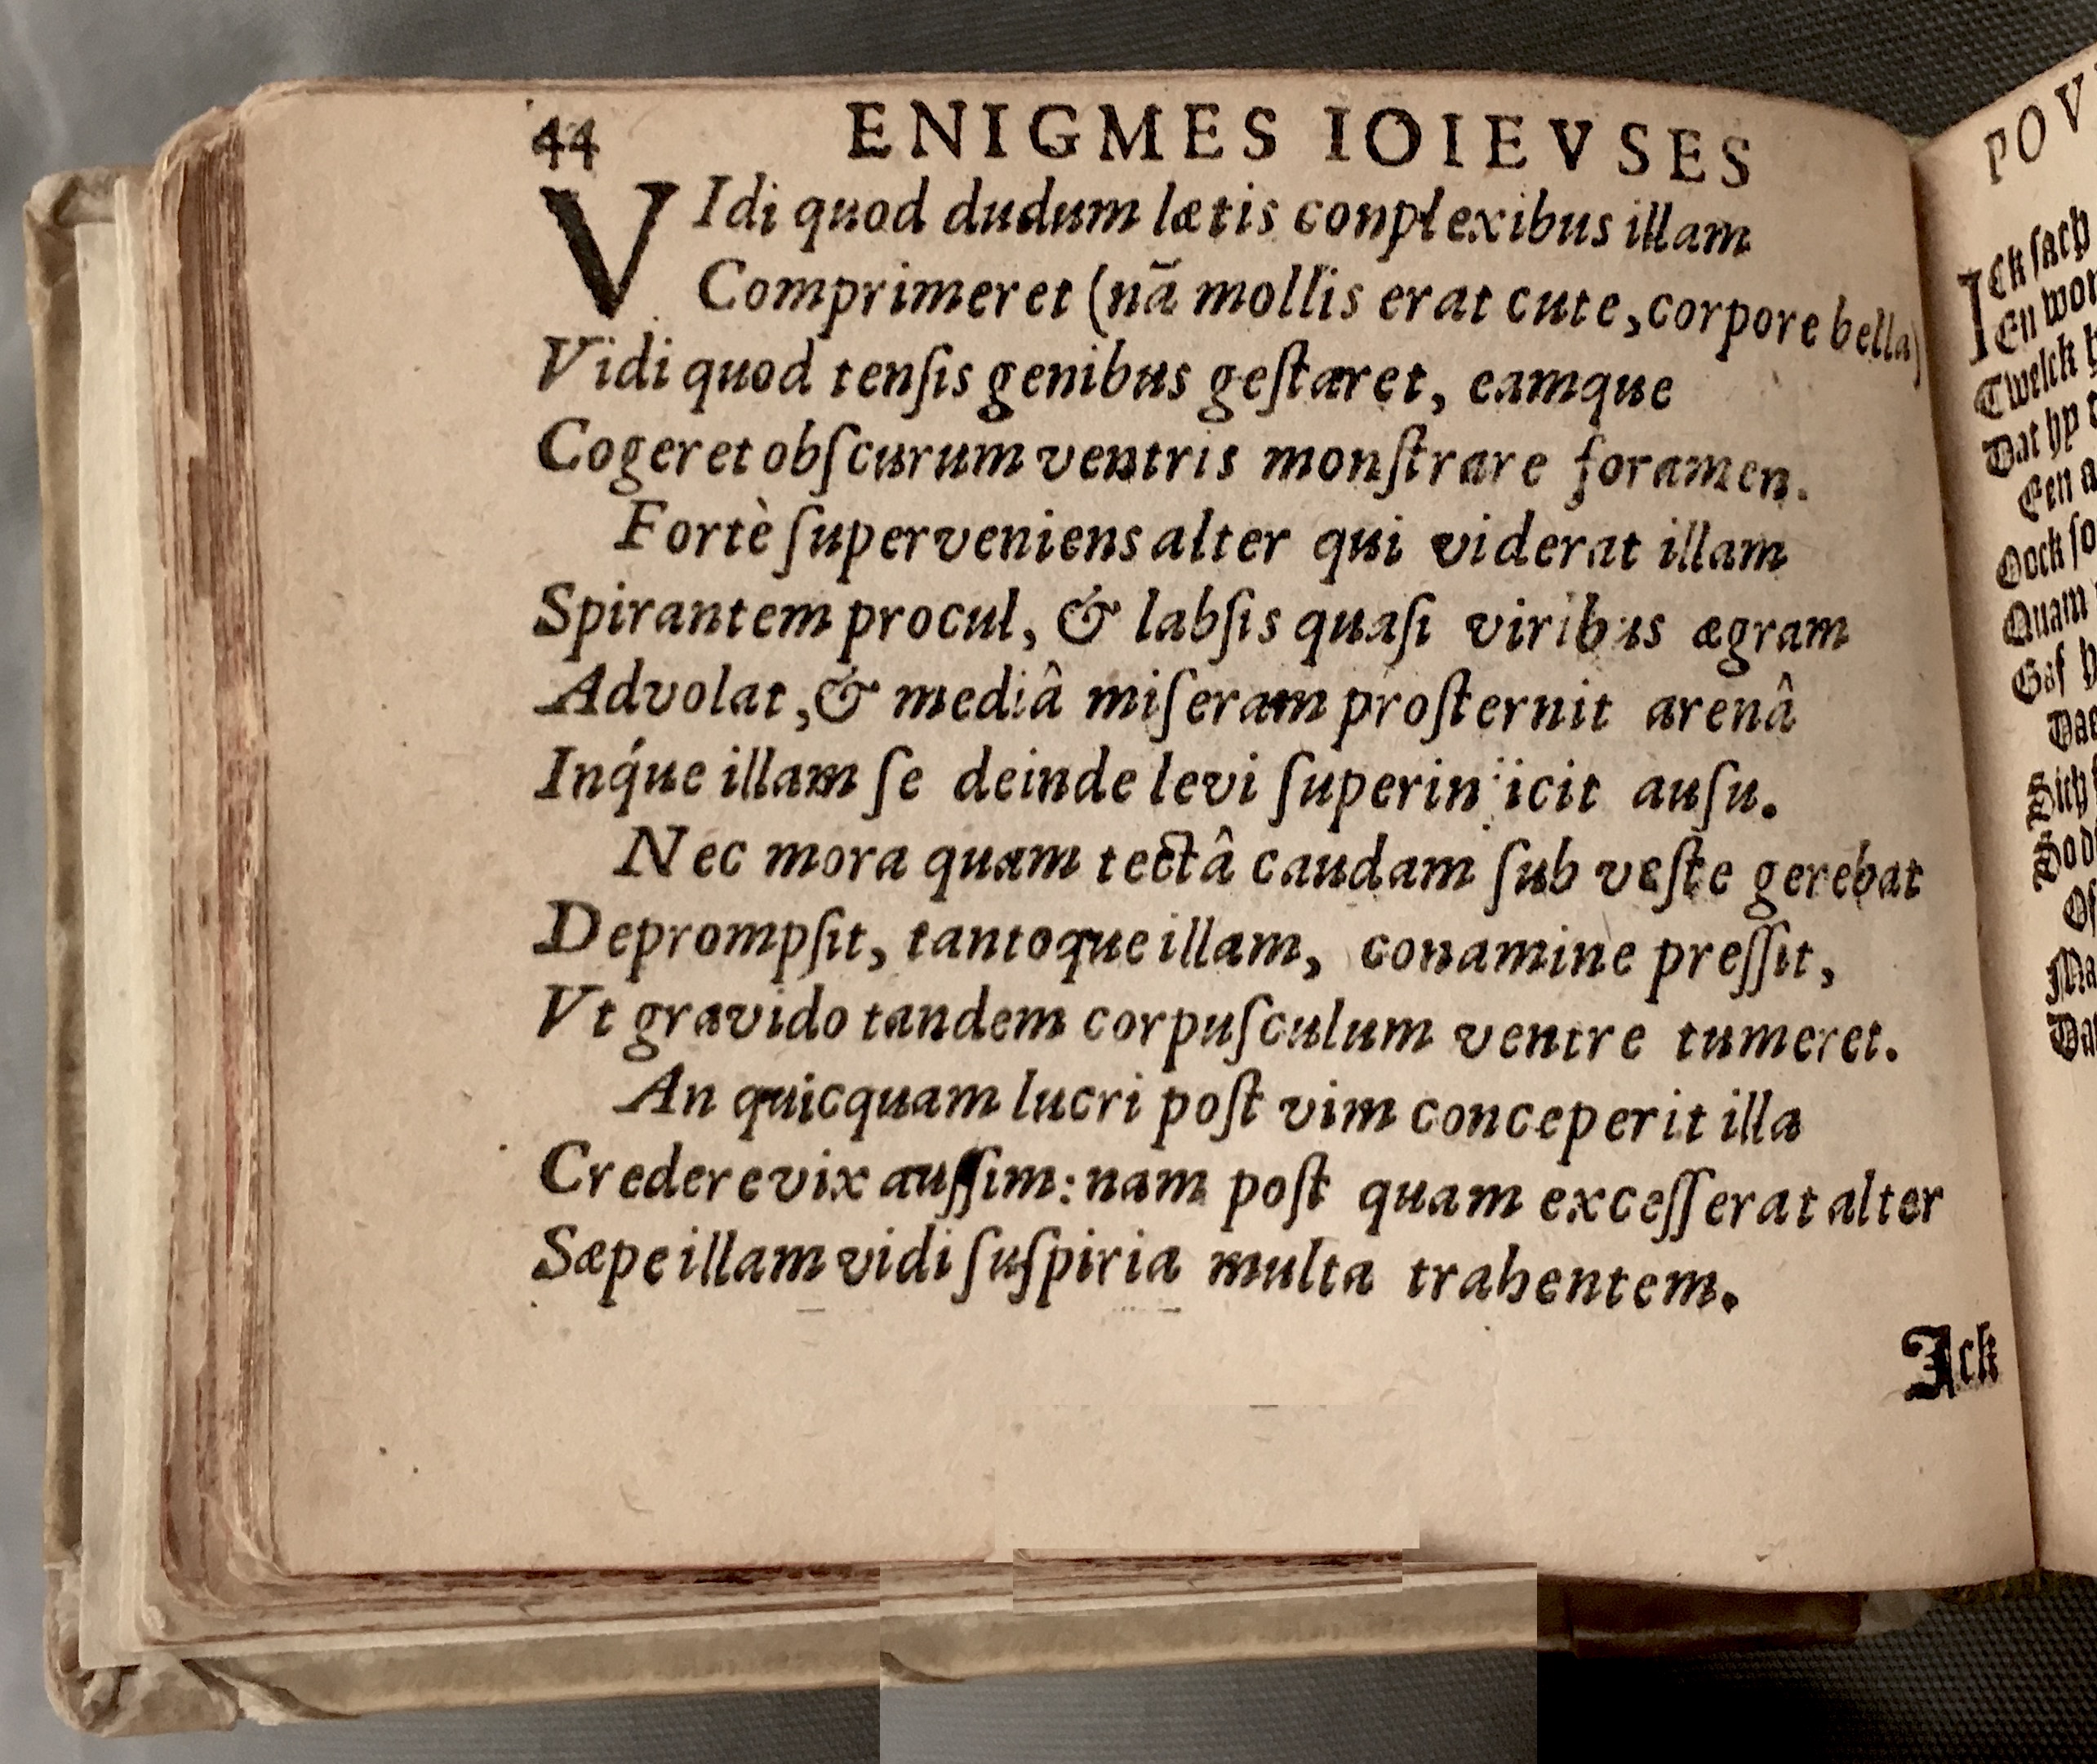 44 ENIGMES IOIEVSES
VIdi quod dudum lætis conplexibus illam
Comprimeret (nã mollis erat cute, corpore bella)
Vidi quod tenſis genibus geſtaret, eamque
Cogeret obſcurum ventris monſtrare foramen.
Fortè ſuperveniens alter qui viderat illam
Spirantem procul, & labſis quaſi viribus ægram
Advolat, & mediâ miſeram proſternit arenâ
Inq́ue illam ſe deinde levi ſuperinijcit auſu.
Nec mora quam tectâ caudam ſub veſte gerebat
Deprompſit, tantoque illam, conamine preſſit,
Vt gravido tandem corpuſculum ventre tumeret.
An quicquam lucri poſt vim conceperit illa
Credere vix auſſim: nam poſt quam exceſſerat alter
Sæpe illam vidi ſuſpiria multa trahentem.
Ick
POV
Ick ſach
En
Twelck
Dat hy
Een
Oock
Quam
Gaf